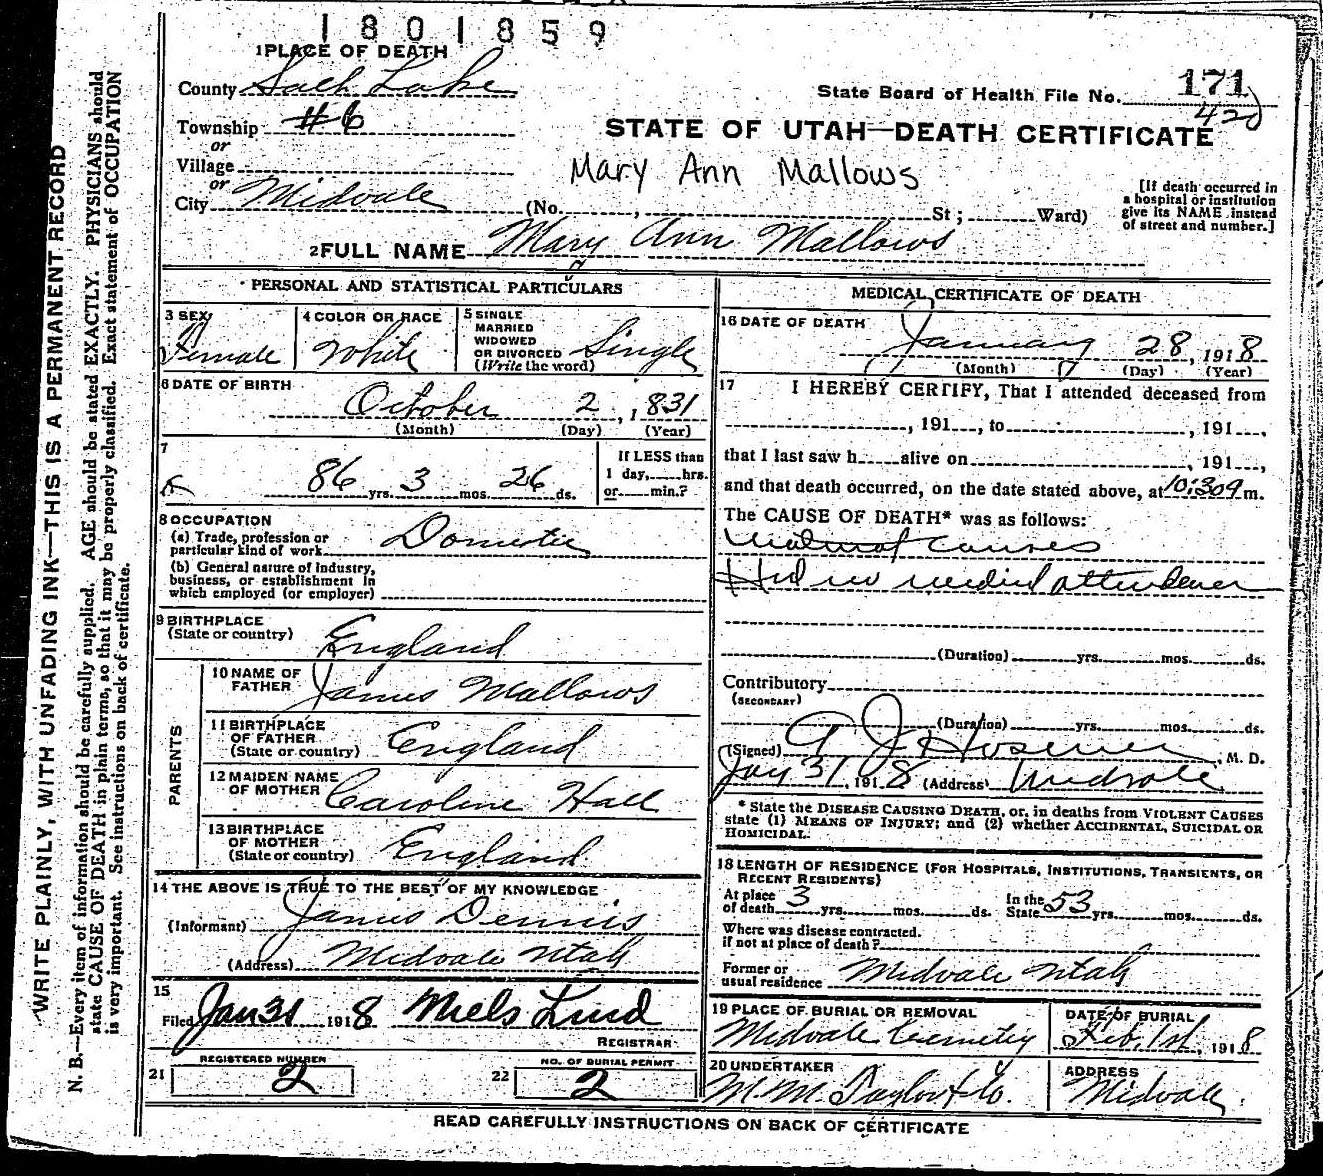 1801859
1 PLACE OF DEATH
County Salt Lake
State Board of Health File No. 171
420
Township #6
or
STATE OF UTAH—DEATH CERTIFICATE
Village
or
Mary Ann Mallows
City Midvale (No. , St; Ward)
[If death occurred in
a hospital or institution
give its NAME instead
of street and number.]
2 FULL NAME Mary Ann Mallows
PERSONAL AND STATISTICAL PARTICULARS
3 SEX Female
4 COLOR OR RACE White
5 SINGLE
MARRIED
WIDOWED
OR DIVORCED
(Write the word) Single
6 DATE OF BIRTH
October 2, 1831
(Month) (Day) (Year)
7
86 yrs. 3 mos. 26 ds.
If LESS than
1 day, hrs.
or min.?
8 OCCUPATION
(a) Trade, profession or
particular kind of work Domestic
(b) General nature of industry,
business, or establishment in
which employed (or employer)
9 BIRTHPLACE
(State or country) England
PARENTS
10 NAME OF
FATHER James Mallows
11 BIRTHPLACE
OF FATHER
(State or country) England
12 MAIDEN NAME
OF MOTHER Caroline Hall
13 BIRTHPLACE
OF MOTHER
(State or country) England
14 THE ABOVE IS TRUE TO THE BEST OF MY KNOWLEDGE
(Informant) James Dennis
(Address) Midvale Utah
15
Filed Jan 31 1918 Niels Lind
REGISTRAR
21 REGISTERED NUMBER
2
22 NO. OF BURIAL PERMIT
2
MEDICAL CERTIFICATE OF DEATH
16 DATE OF DEATH
January 28, 1918
(Month) (Day) (Year)
17 I HEREBY CERTIFY, That I attended deceased from
, 191 , to , 191 ,
that I last saw h alive on , 191 ,
and that death occurred, on the date stated above, at 10:30 m.
The CAUSE OF DEATH* was as follows:
Natural causes
Had no medical attendance
(Duration) yrs. mos. ds.
Contributory
(SECONDARY)
(Duration) yrs. mos. ds.
(Signed) J , M. D.
Jan 31, 1918 (Address) Midvale
* State the DISEASE CAUSING DEATH, or, in deaths from VIOLENT CAUSES
state (1) MEANS OF INJURY; and (2) whether ACCIDENTAL, SUICIDAL OR
HOMICIDAL.
18 LENGTH OF RESIDENCE (FOR HOSPITALS, INSTITUTIONS, TRANSIENTS, OR
RECENT RESIDENTS)
At place
of death 3 yrs. mos. ds. In the
State 53 yrs. mos. ds.
Where was disease contracted.
if not at place of death?
Former or
usual residence Midvale Utah
19 PLACE OF BURIAL OR REMOVAL
Midvale Cemetery
DATE OF BURIAL
Feb. 1st, 1918
20 UNDERTAKER
M. M. Taylor & Co.
ADDRESS
Midvale
READ CAREFULLY INSTRUCTIONS ON BACK OF CERTIFICATE
WRITE PLAINLY, WITH UNFADING INK—THIS IS A PERMANENT RECORD
N. B.—Every item of information should be carefully supplied. AGE should be stated EXACTLY. PHYSICIANS should
state CAUSE OF DEATH in plain terms, so that it may be properly classified. Exact statement of OCCUPATION
is very important. See instructions on back of certificate.